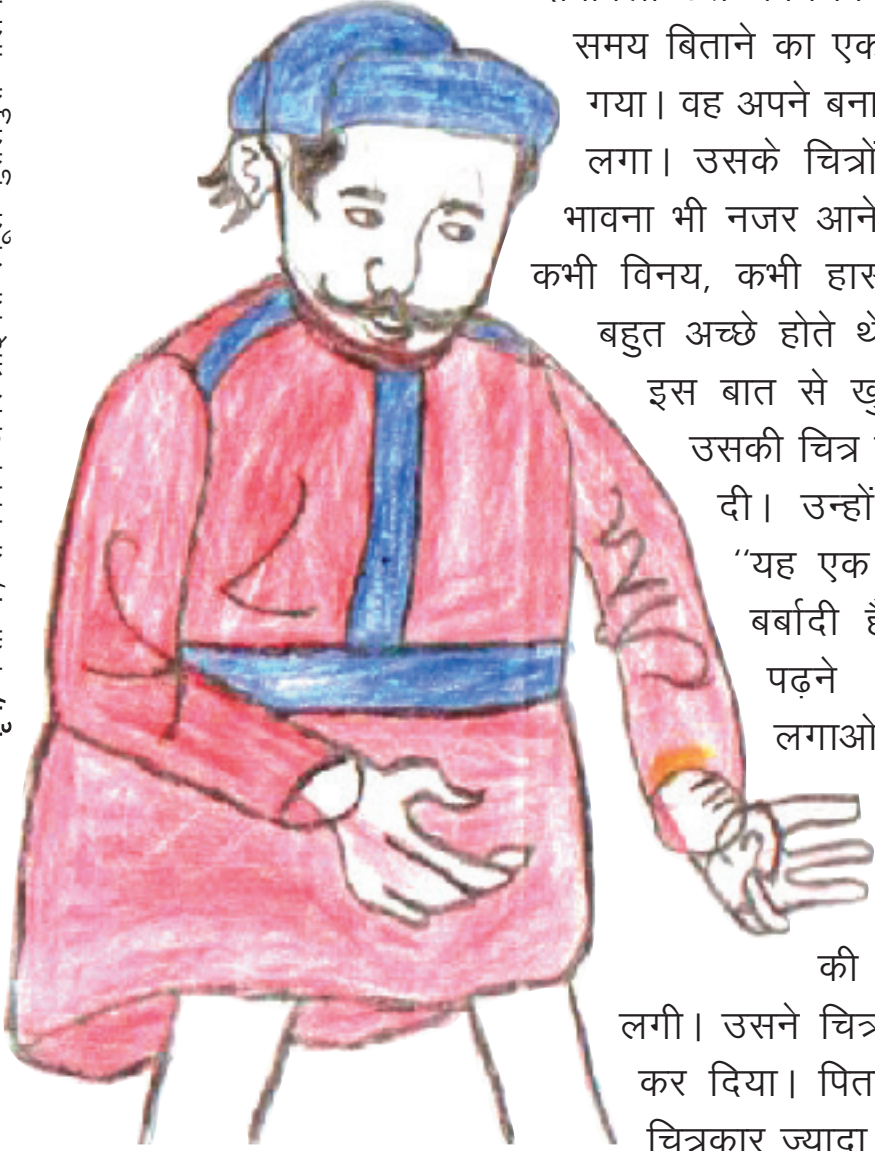 समय बिताने का एक
गया। वह अपने बना
लगा। उसके चित्रों
भावना भी नजर आने
कभी विनय, कभी हास
बहुत अच्छे होते थे
इस बात से खु
उसकी चित्र
दी। उन्हों
“यह एक
बर्बादी है
पढ़ने
लगाओ
की
लगी। उसने चित्र
कर दिया। पित
चित्रकार ज्यादा